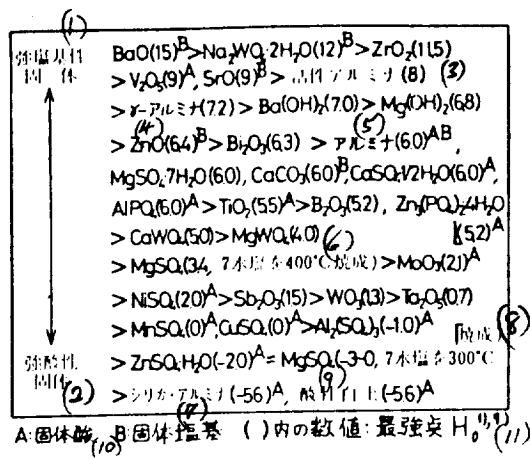 (1)
強塩基性 BaO(15)ᴮ>Na₂WO₄·2H₂O(12)ᴮ>ZrO₂(11.5)
固体 >V₂O₅(9)ᴬ, SrO(9)ᴮ>活性アルミナ(8) (3)
>γ-アルミナ(7.2)>Ba(OH)₂(7.0)>Mg(OH)₂(6.8)
(4) (5)
>ZnO(6.4)ᴮ>Bi₂O₃(6.3)>アルミナ(6.0)ᴬᴮ,
MgSO₄·7H₂O(6.0), CaCO₃(6.0)ᴮ, CaSO₄·1/2H₂O(6.0)ᴬ,
AlPO₄(6.0)ᴬ>TiO₂(5.5)ᴬ>B₂O₃(5.2), Zn₃(PO₄)₂·4H₂O
>CaWO₄(5.0)>MgWO₄(4.0) (6) (5.2)ᴬ
>MgSO₄(3.4, 7水塩を400°C焼成)>MoO₃(2.1)ᴬ
>NiSO₄(2.0)ᴬ>Sb₂O₃(1.5)>WO₃(1.3)>Ta₂O₅(0.7)
>MnSO₄(0)ᴬ, CuSO₄(0)ᴬ>Al₂(SO₄)₃(-1.0)ᴬ 焼成) (8)
強酸性 >ZnSO₄·H₂O(-2.0)ᴬ=MgSO₄(-3.0, 7水塩を300°C
固体 (2) >シリカ·アルミナ(-5.6)ᴬ, 酸性白土(-5.6)ᴬ (9)
(7)
A:固体酸 (10) B:固体塩基 ( )内の数値:最強点 H₀ (11)